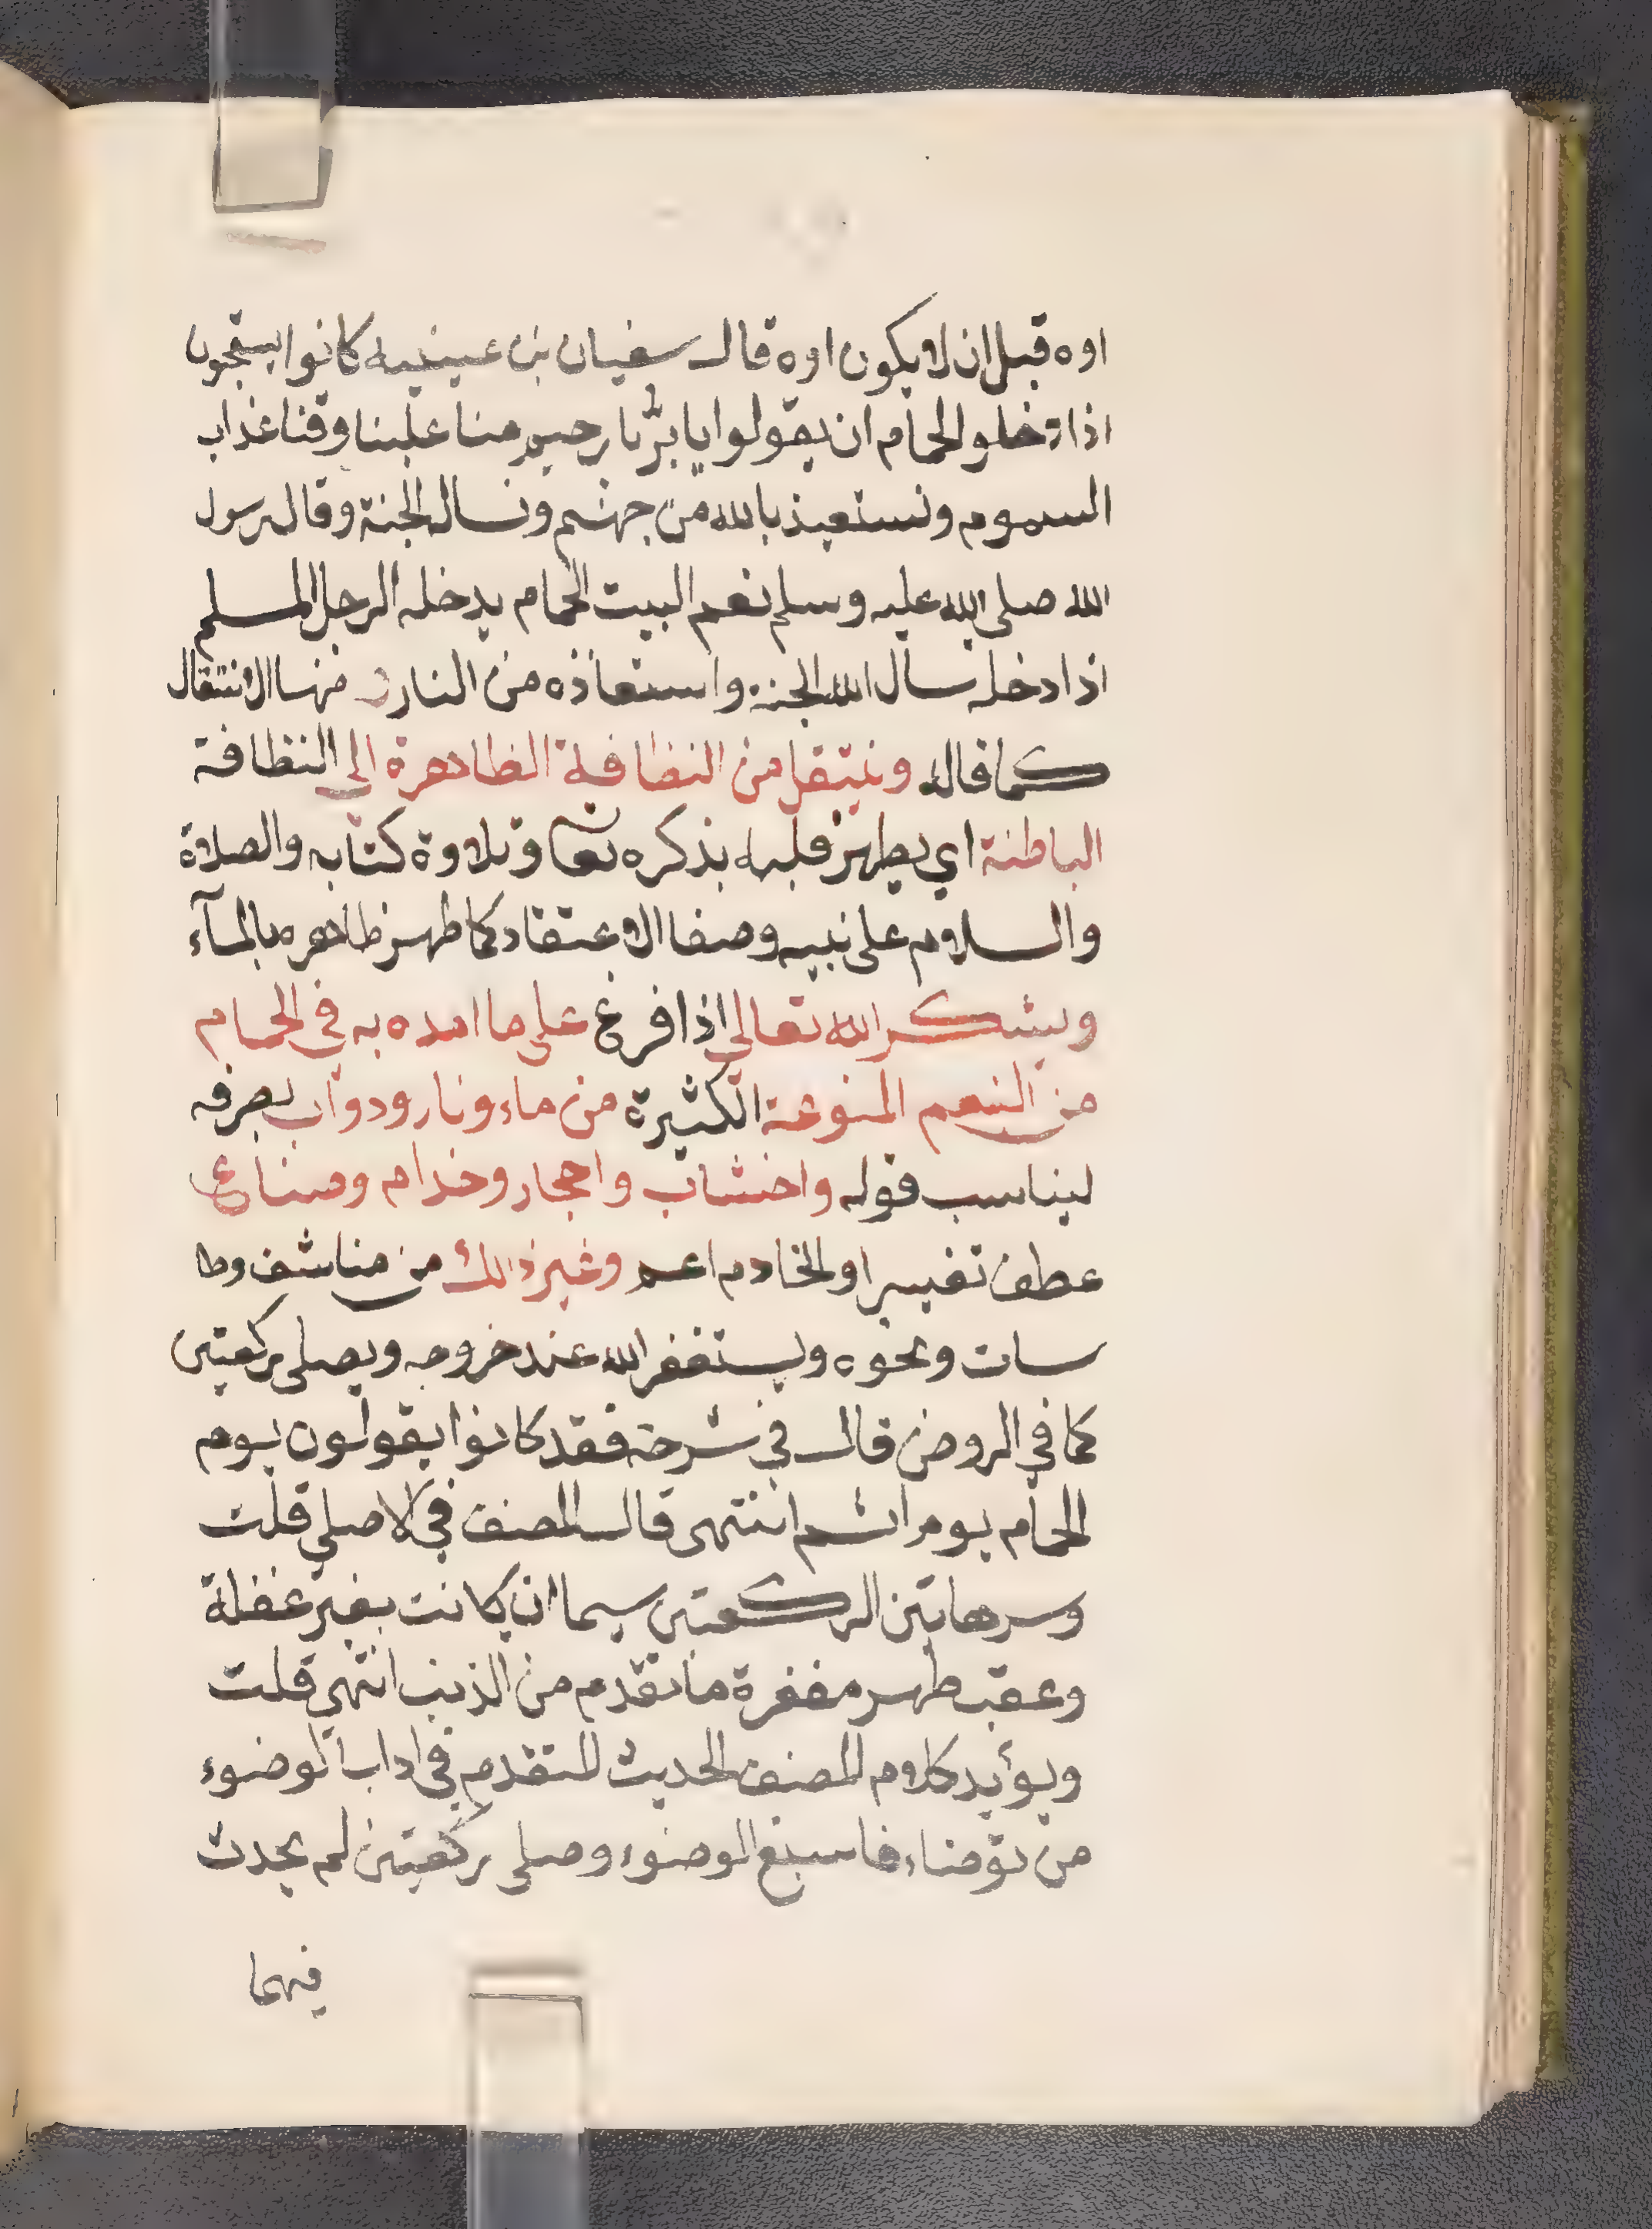 اوه قبل ان لا يكون اوه قال سفيان بن عيينيه كانوا يستحبون
اذا دخلو الحمام ان يقولوا يا برُّ يا رحيم من علينا وقنا عذاب
السموم ونستعيذ بالله من جهنم ونسال الجنة وقال رسول
الله صلى الله عليه وسلم نعم البيت الحمام يدخله الرجل المسلم
اذا دخله سال الله الجنة واستعاذه من النار منها الانتقال
كما قال وينتقل من النظافة الظاهرة الى النظافة
الباطنة اي يطهر قلبه بذكره تعا وتلاوة كتابه والصلاة
والسلام على نبيه وصفا الاعتقاد كما طهر ظاهره بالمآء
ويشكر الله تعالى اذا فرغ على ما امده به في الحمام
من النعم المنوعة الكثيرة من ماء ونار ودواب بصرفه
ليناسب قوله واخشاب واحجار وخدام وصناع
عطف تفسير او الخادم اعم وغير ذالك من مناشف وطا
سات ونحوه ويستغفر الله عند خروجه ويصلى ركعتين
كما في الروض قال في شرحه فقد كانوا يقولون يوم
الحمام يوم اثم انتهى قال المصنف في الاصلي قلت
وسر هاتين الركعتين سيما ان كانت بغير غفلة
وعقب طهر مغفرة ما تقدم من الذنب انتهى قلت
ويؤيد كلام المصنف الحديث المتقدم في اداب الوضوء
من توضاء فاسبغ الوضوء وصلى ركعتين لم يحدث
فيهما